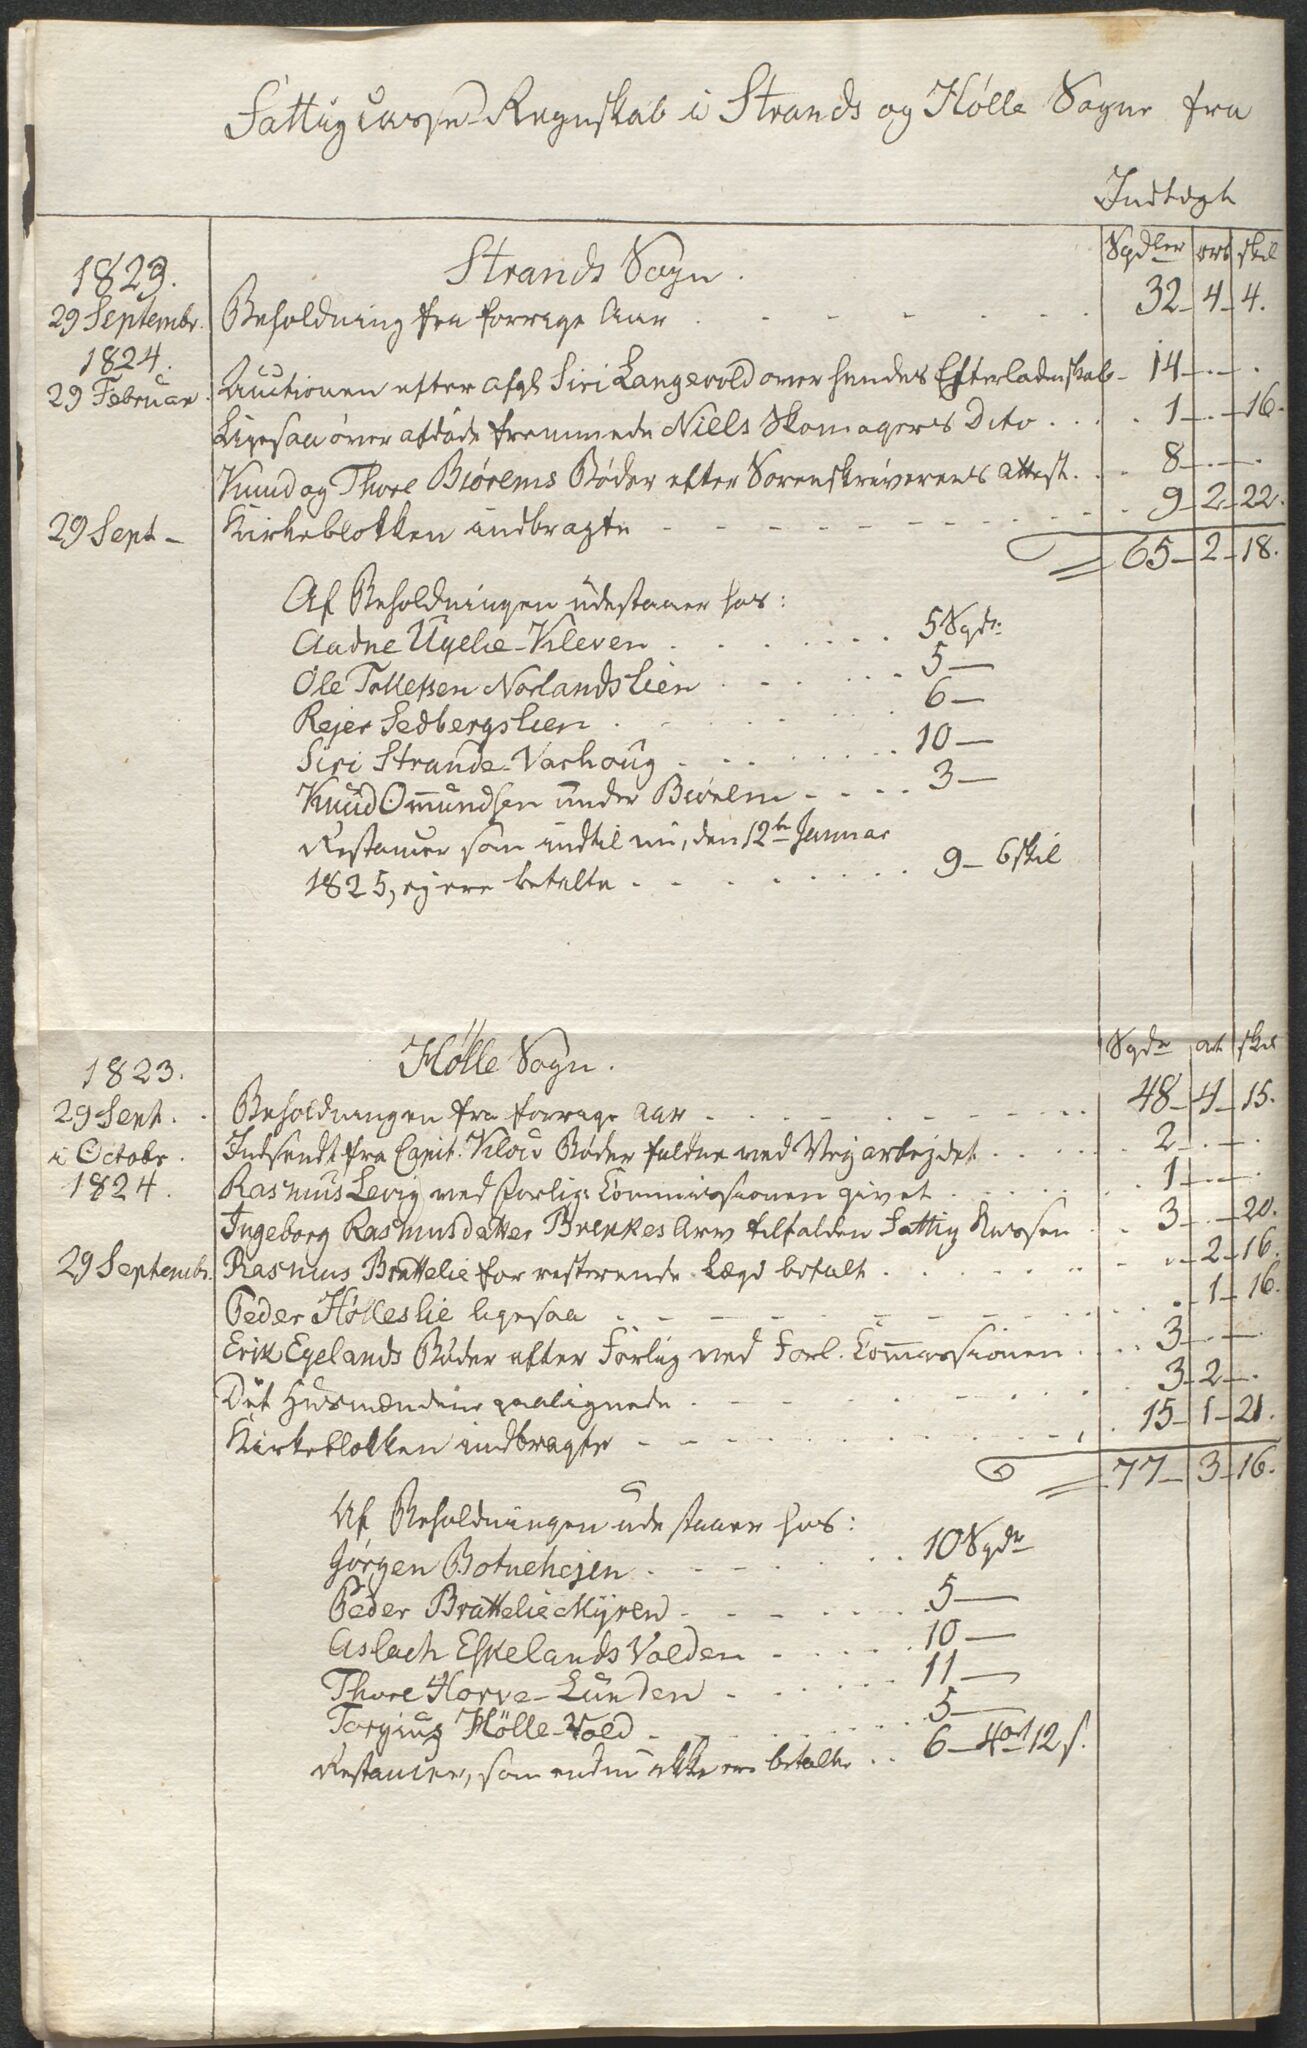 Fattigcasse-Regnskab i Strands og Hølle Sogne fra
Indtægt
Strands Sogn. Sgdler ort skil
1823.
29 Septembr. Beholdning fra forrige Aar . . . . . . . 32 - 4 - 4.
1824.
29 Februar. Auctionen efter afg: Siri Langevold over hendes Efterladenskab - 14 - . - .
Ligesaa over afdøde fremmede Niels Skomagers Dito . . . . 1 - . - 16.
Knud og Thore Biørems Bøder efter Sorenskriverens Attest. . . 8 - . - .
29 Sept - Kirkeblokken indbragte - - - - - - - - - - 9 - 2 - 22.
65 - 2 - 18.
Af Beholdningen udestaaer hos:
Aadne Ugelie-Kleven . . . . . . 5 Sgdr:
Ole Tollefsen Norlandslien . . . . . . 5 —
Rejer Sedbergslien . . . . . . 6 —
Siri Strande-Varhoug . . . . . . 10 —
Knud Omundsen under Biørelm . . . . 3 —
Restancer som indtil nu, den 12te Januar
1825, ej ere betalte . . . . . . . . 9 - 6 skil
Hølle Sogn. Sgdr ort skil
1823.
29 Sept. . Beholdningen fra forrige Aar . . . . . . . . 48 - 4 - 15.
i Octobr. Indsendt fra Capit. Klou Bøder faldne ved Vejarbejdet . . . . . . 2 - . - .
1824. Rasmus Levig ved Forligs Commissionen givet . . . . . . 1 - . - .
Ingeborg Rasmusdatter Brekkes Arv tilfalden Fattig Kassen . . 3 - . - 20.
29 Septembr. Rasmus Brattelie for resterende Lægd betalt . . . . . . . . . - 2 - 16.
Peder Hølleslie ligesaa . . . . . . . . . . . - 1 - 16.
Erik Egelands Bøder efter Forlig ved Forl. Commissionen . . . . 3 - . - .
Det Huusmændene paalignede . . . . . . . . 3 - 2 - .
Kirkeblokken indbragte - - - - - - - - - - 15 - 1 - 21.
77 - 3 - 16.
Af Beholdningen udestaaer hos:
Jørgen Botnehejen . . . . . . 10 Sgdr
Peder Brattelie Myren . . . . . . 5 —
Aslach Eskelands Volden . . . . . 10 —
Thore Horve-Lunden . . . . . . 11 —
Torgius Hølle-Vold . . . . . . . 5 —
Restancer, som endnu ikke ere betalte . . 6 - 4 ort 12 s.